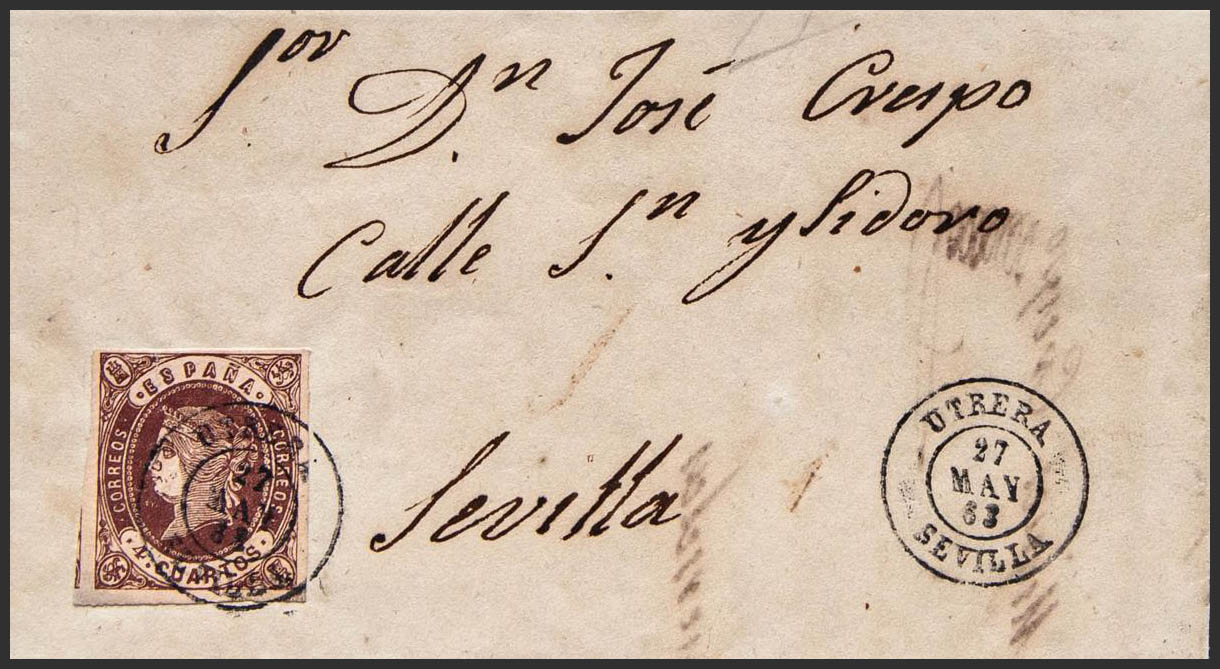 Sor Dn José Crespo
Calle Sn ysidoro
Sevilla
·ESPAÑA·
CORREOS
CORREOS
4. CUARTOS.
27
MAY
63
UTRERA
27
MAY
63
SEVILLA